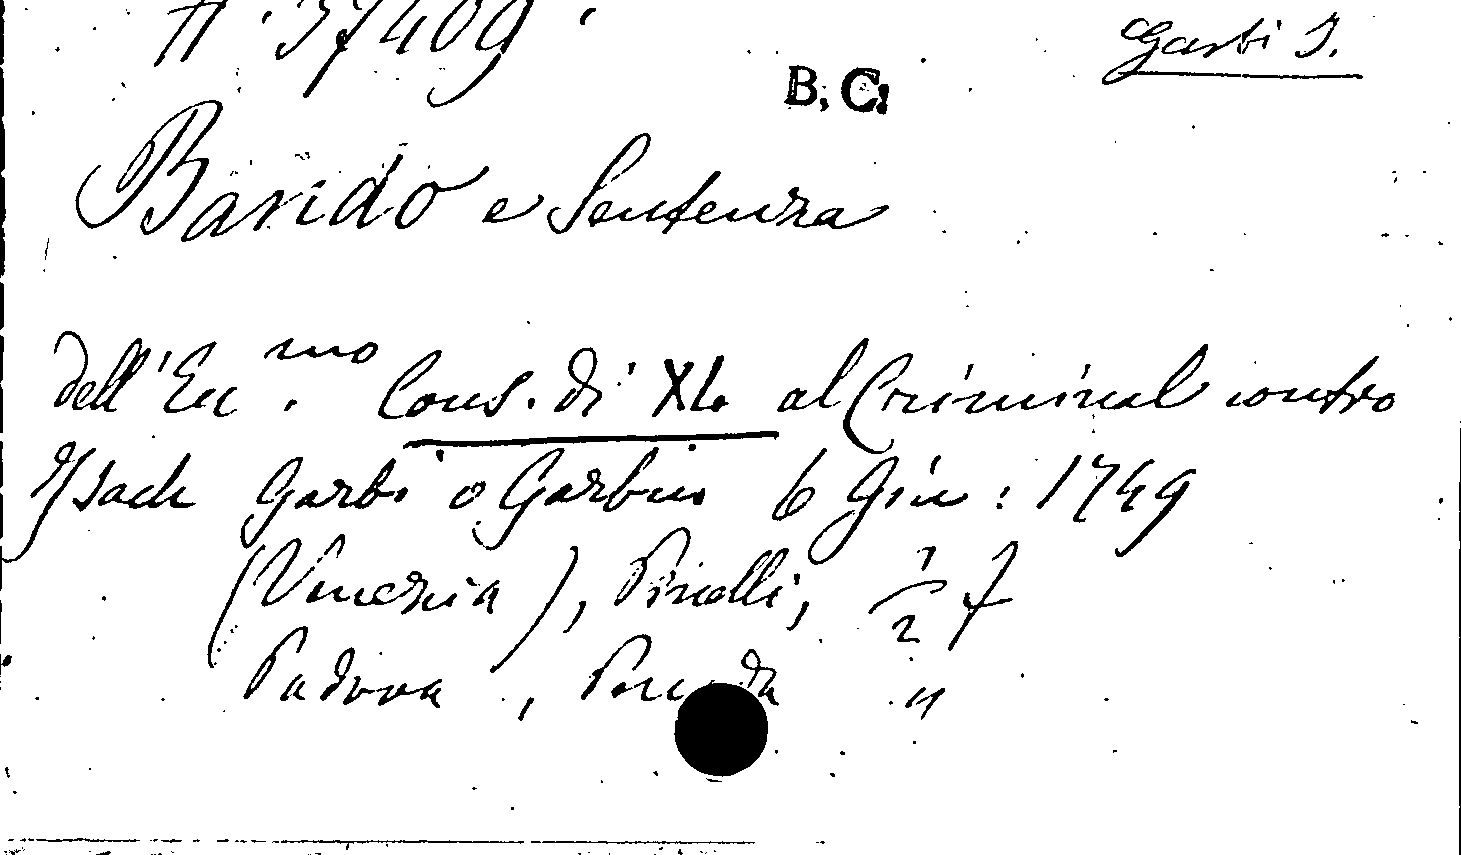 H . 37409 .
Garbi I.
B. C.
Bando e Sentenza
dell'Ecc.mo Cons. di XL. al Criminal contro
Isach Garbi o Garbin 6 Giu : 1749
(Venezia), Pinelli, 1/2 f
Padova , "